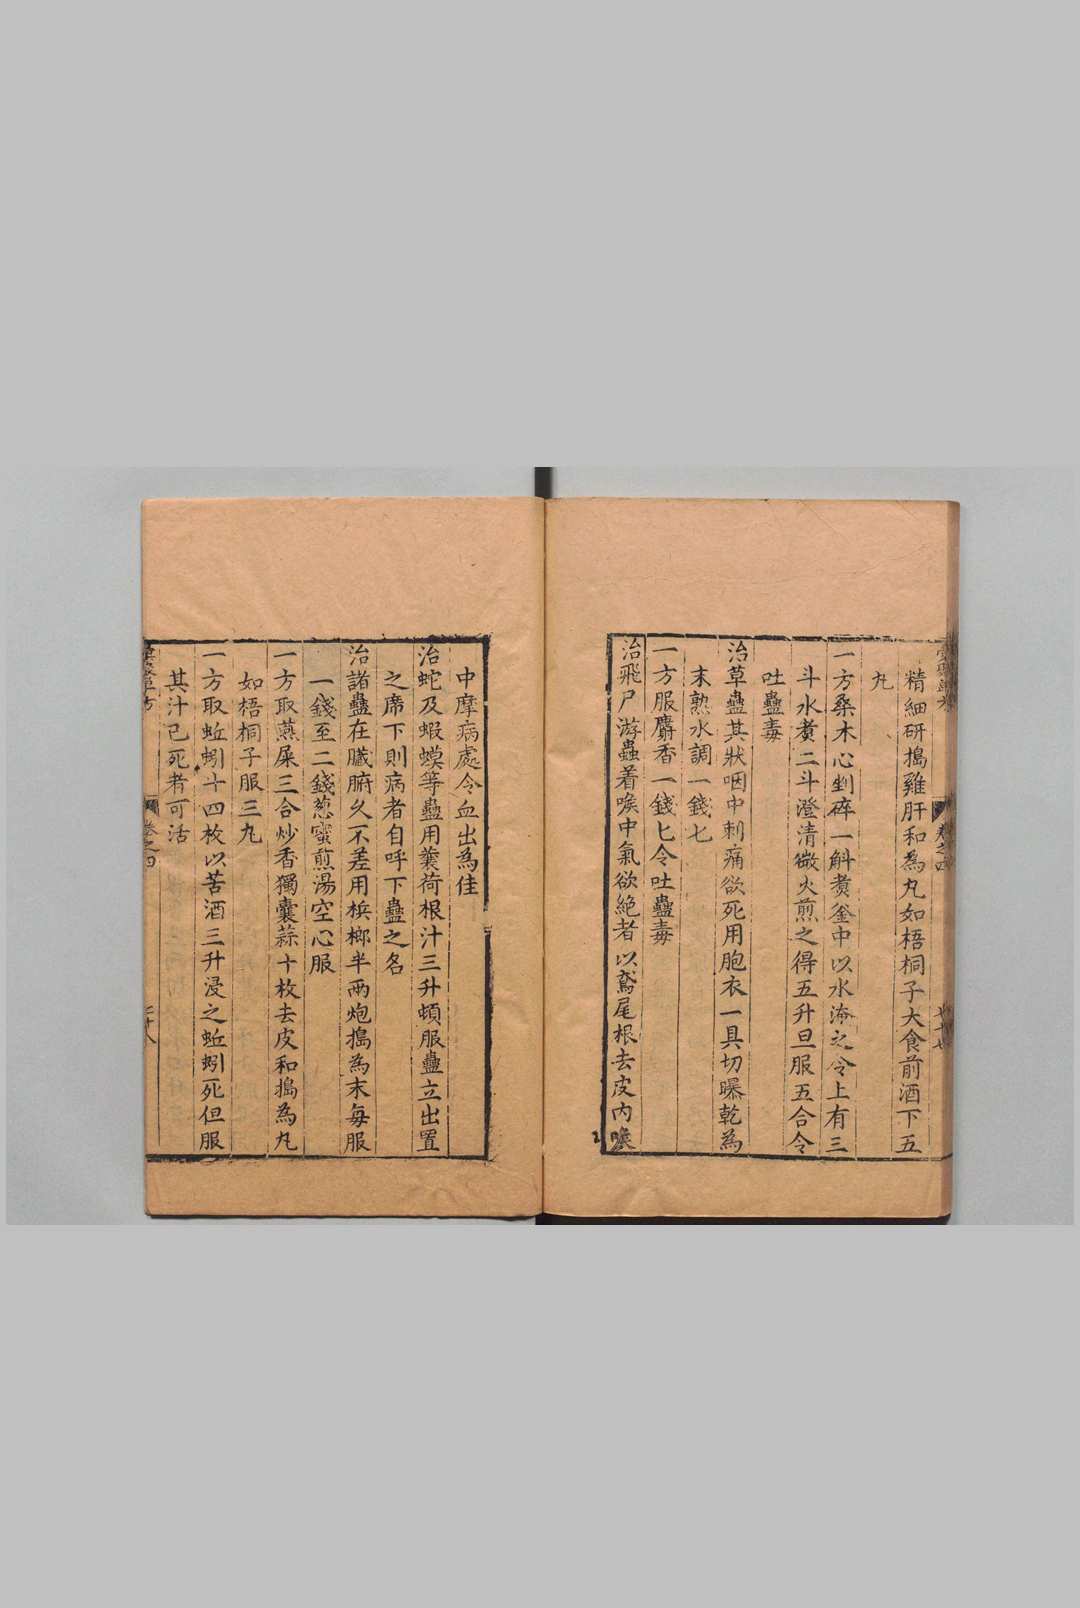 精細研搗雞肝和為丸如梧桐子大食前酒下五
丸
一方桑木心剉碎一斛煑釜中以水淹之令上有三
斗水煑二斗澄清微火煎之得五升旦服五合令
吐蠱毒
治草蠱其狀咽中刺痛欲死用胞衣一具切曝乾為
末熟水調一錢七
一方服麝香一錢匕令吐蠱毒
治飛尸游蠱着喉中氣欲絶者以鳶尾根去皮内喉
中摩病處令血出為佳
治蛇及蝦蟆等蠱用蘘荷根汁三升頓服蠱立出置
之席下則病者自呼下蠱之名
治諸蠱在臟腑久不差用檳榔半兩炮搗為末每服
一錢至二錢葱蜜煎湯空心服
一方取燕屎三合炒香獨囊蒜十枚去皮和搗為丸
如梧桐子服三丸
一方取蚯蚓十四枚以苦酒三升浸之蚯蚓死但服
其汁已死者可活
卷之四